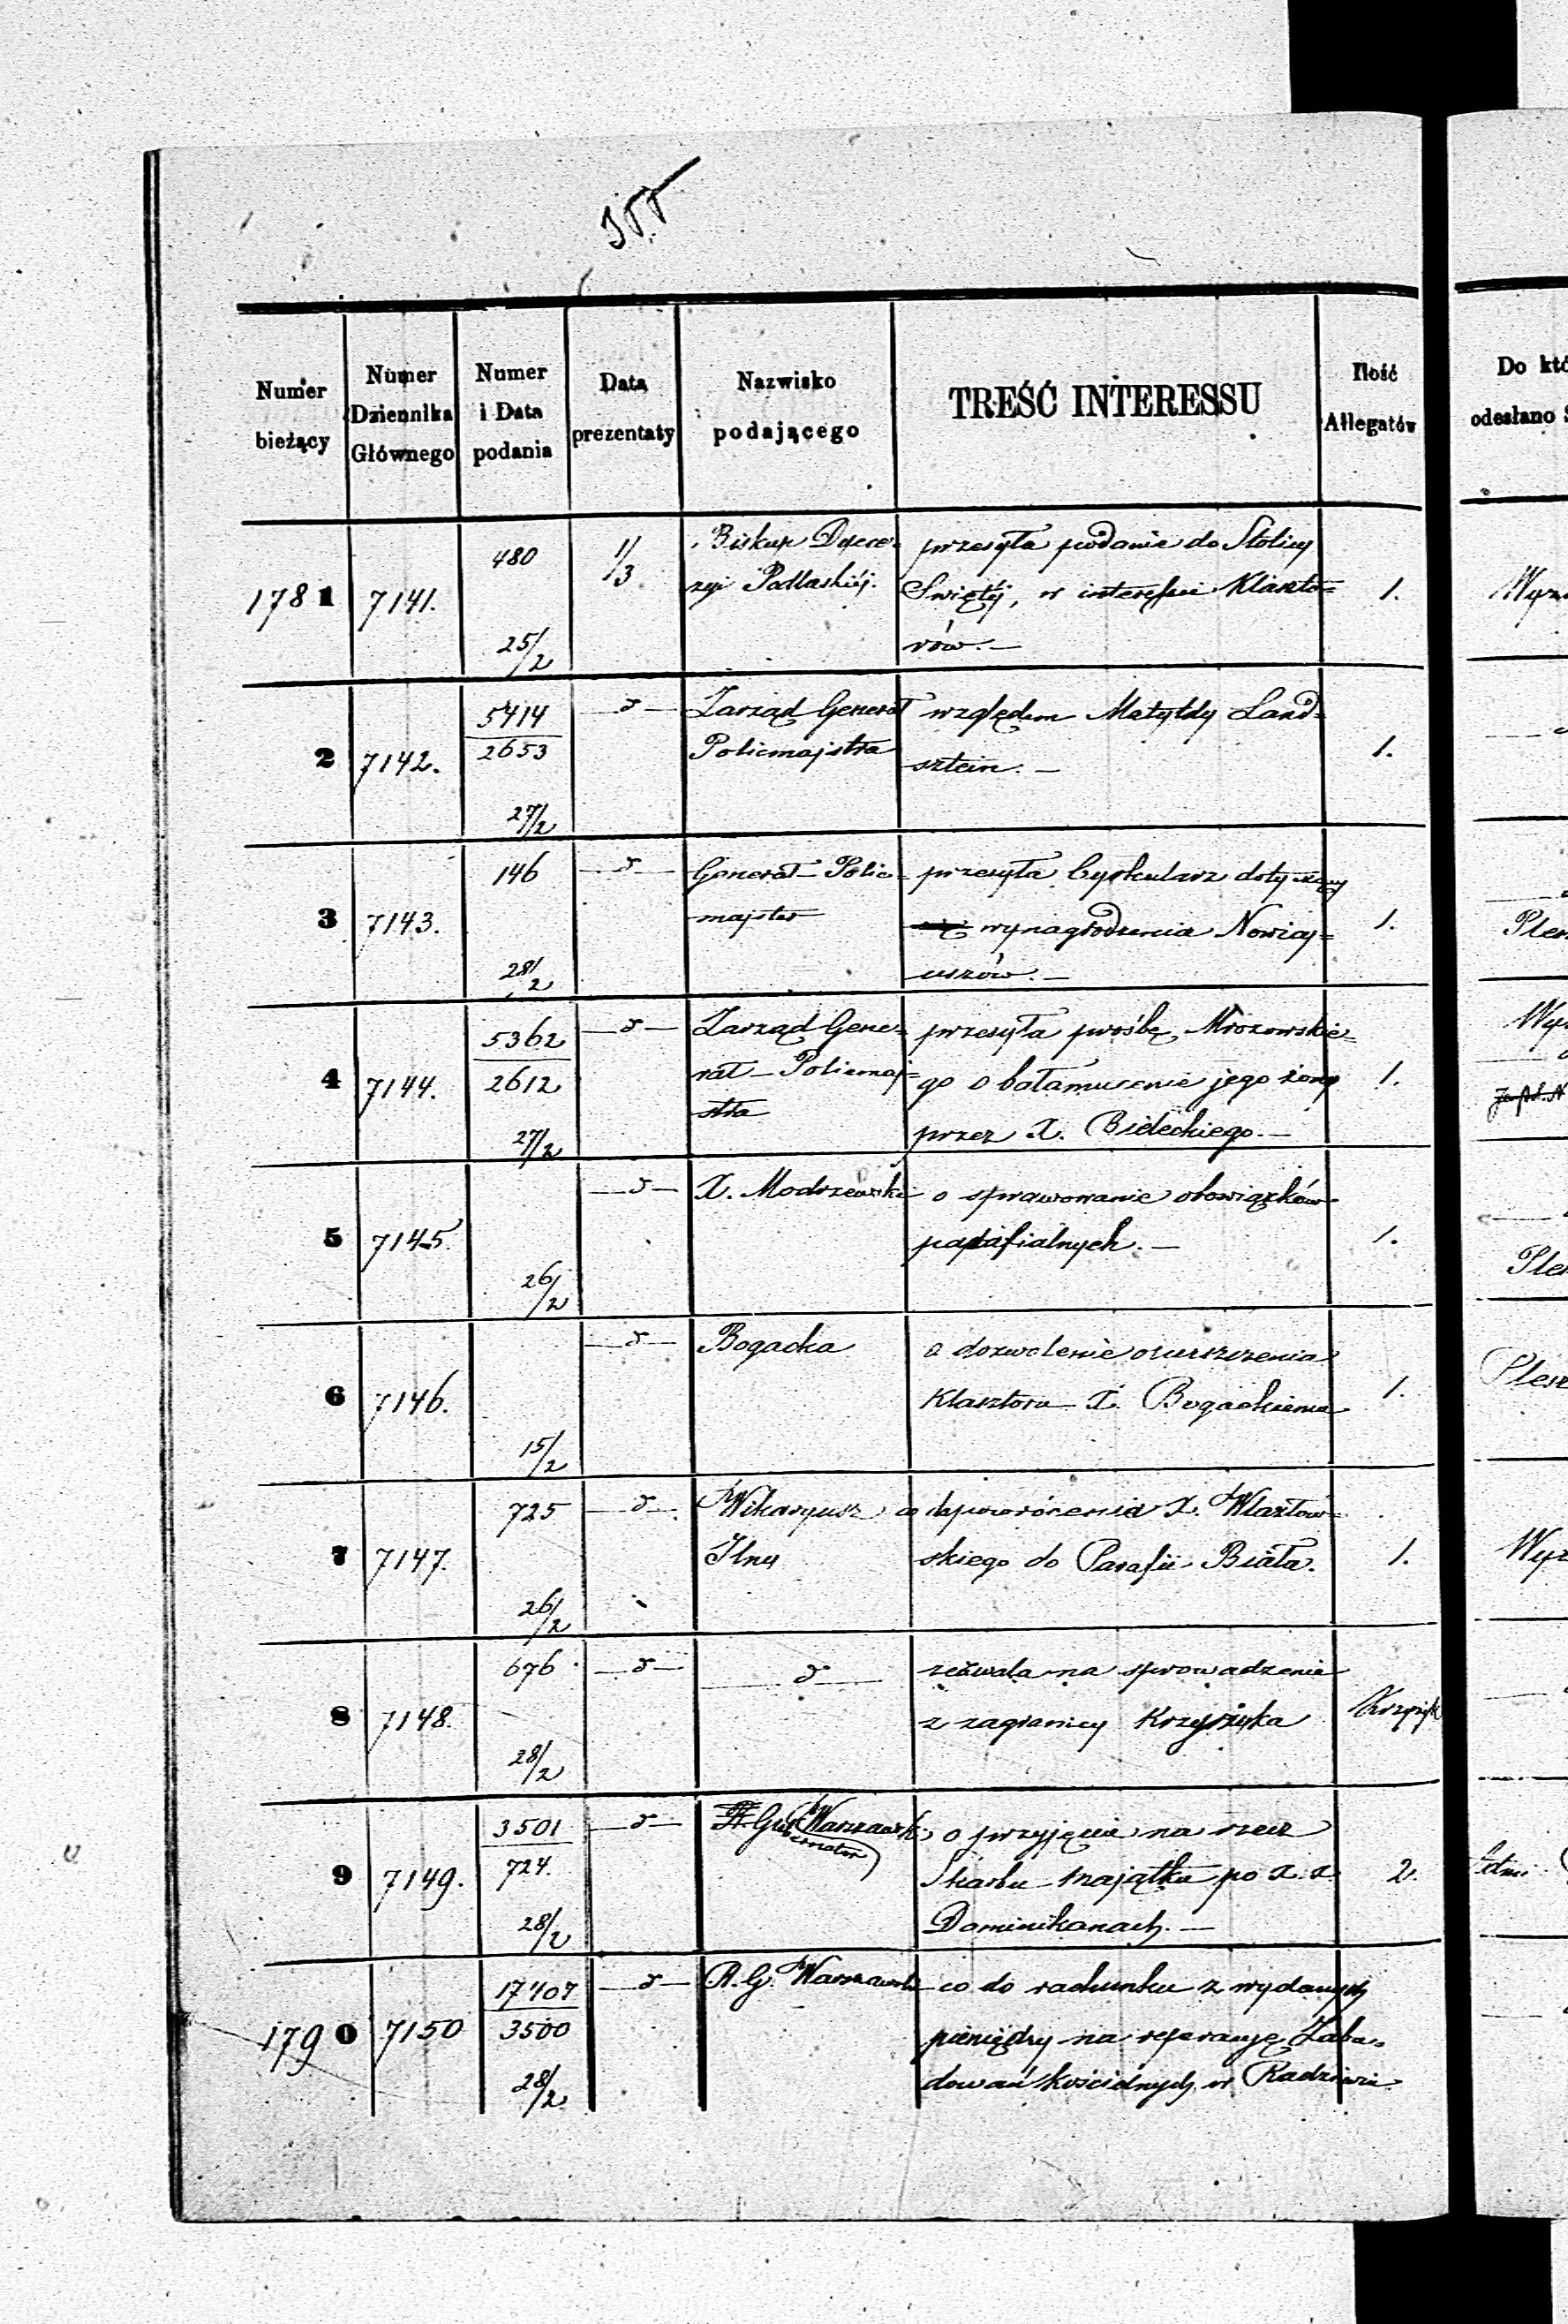 Numer bieżący
Numer Dziennika Głównego
Numer i Data podania
Data prezentaty
Nazwisko podającego
TREŚĆ INTERESSU
Ilość Allegatów
Do któ
odesłano
1781 7141. 480 25/2 1/3
Biskup Dyece-
zyi Podlaskiéj.
przesyła podanie do Stolicy
Swiętéj, w interesie Klaszto=
rów.—
1.
2 7142. 5414 2653 27/2 — d —
Zarząd Generał
Policmajstra
względem Matyldy Land=
sztein.—
1.
3 7143. 146 28/2 — d —
Generał-Polic-
majster
przesyła Cyrkularz dotyczący
się wynagrodzenia Nowicy=
uszów.—
1.
4 7144. 5362 2612 27/2 — d —
Zarząd Gene-
rał-Policmaj=
stra
przesyła prośbę Mrozowskie=
go o bałamucenie jego żony
przez X. Bieleckiego.—
1.
5 7145. 26/2 — d —
X. Modrzewski
o sprawowanie obowiązków
parafialnych.—
1.
6 7146. 15/2 — d —
Bogacka
o dozwolenie opuszczenia
Klasztoru X. Bogackiemu
1.
7 7147. 725 26/2 — d —
Wikaryusz
Ilny
o
skiego do Parafii Biała.
1.
8 7148. 676 28/2 — d —
— d —
zezwala na sprowadzenie
z zagranicy Krzyżyka
9 7149. 3501 724. 28/2 — d —
Gubernator Warszawski
o przyjęcie na rzecz
Skarbu majątku po X.X.
Dominikanach.—
2.
1790 7150 17407 3500 28/2 — d —
R. G. Warszawski
co do rachunku z wydanych
pieniędzy na reperacyę Zabu=
dowań kościelnych w Radziwie